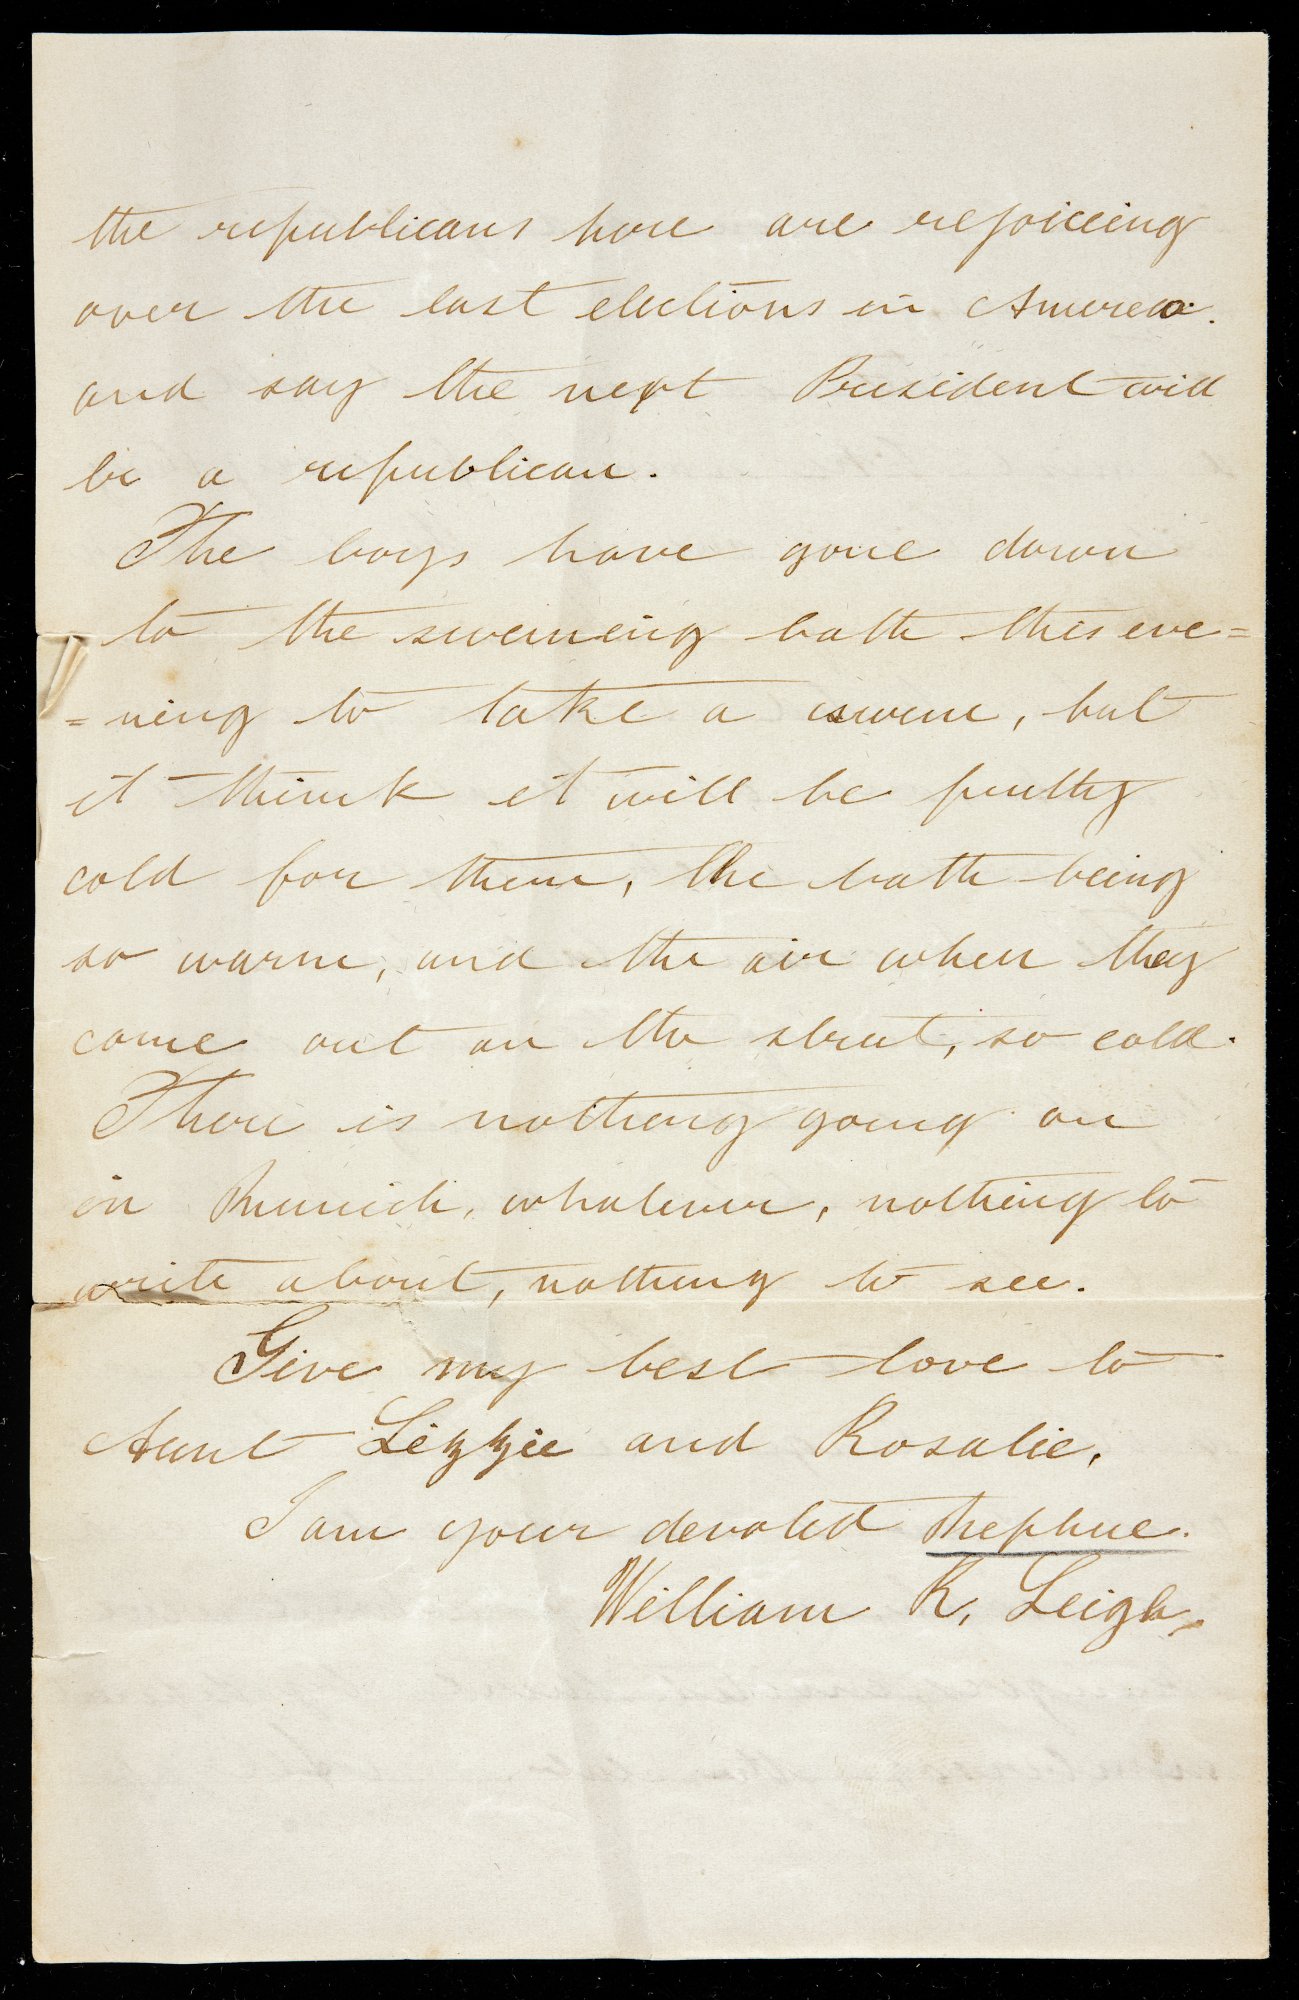 the republicans here are rejoiceing
over the last elections in Amereca.
and say the next President will
be a republican.
The boys have gone down
to the sweming bath this eve=
=ning to take a swem, but
I think it will be pretty
cold for them, the bath being
so warm, and the air when they
come out on the street, so cold.
There is nothing going on
in Munich, whatever, nothing to
write about, nothing to see.
Give my best love to
Aunt Lizzie and Rosalie,
I am your devoted Nephue.
William R. Leigh,